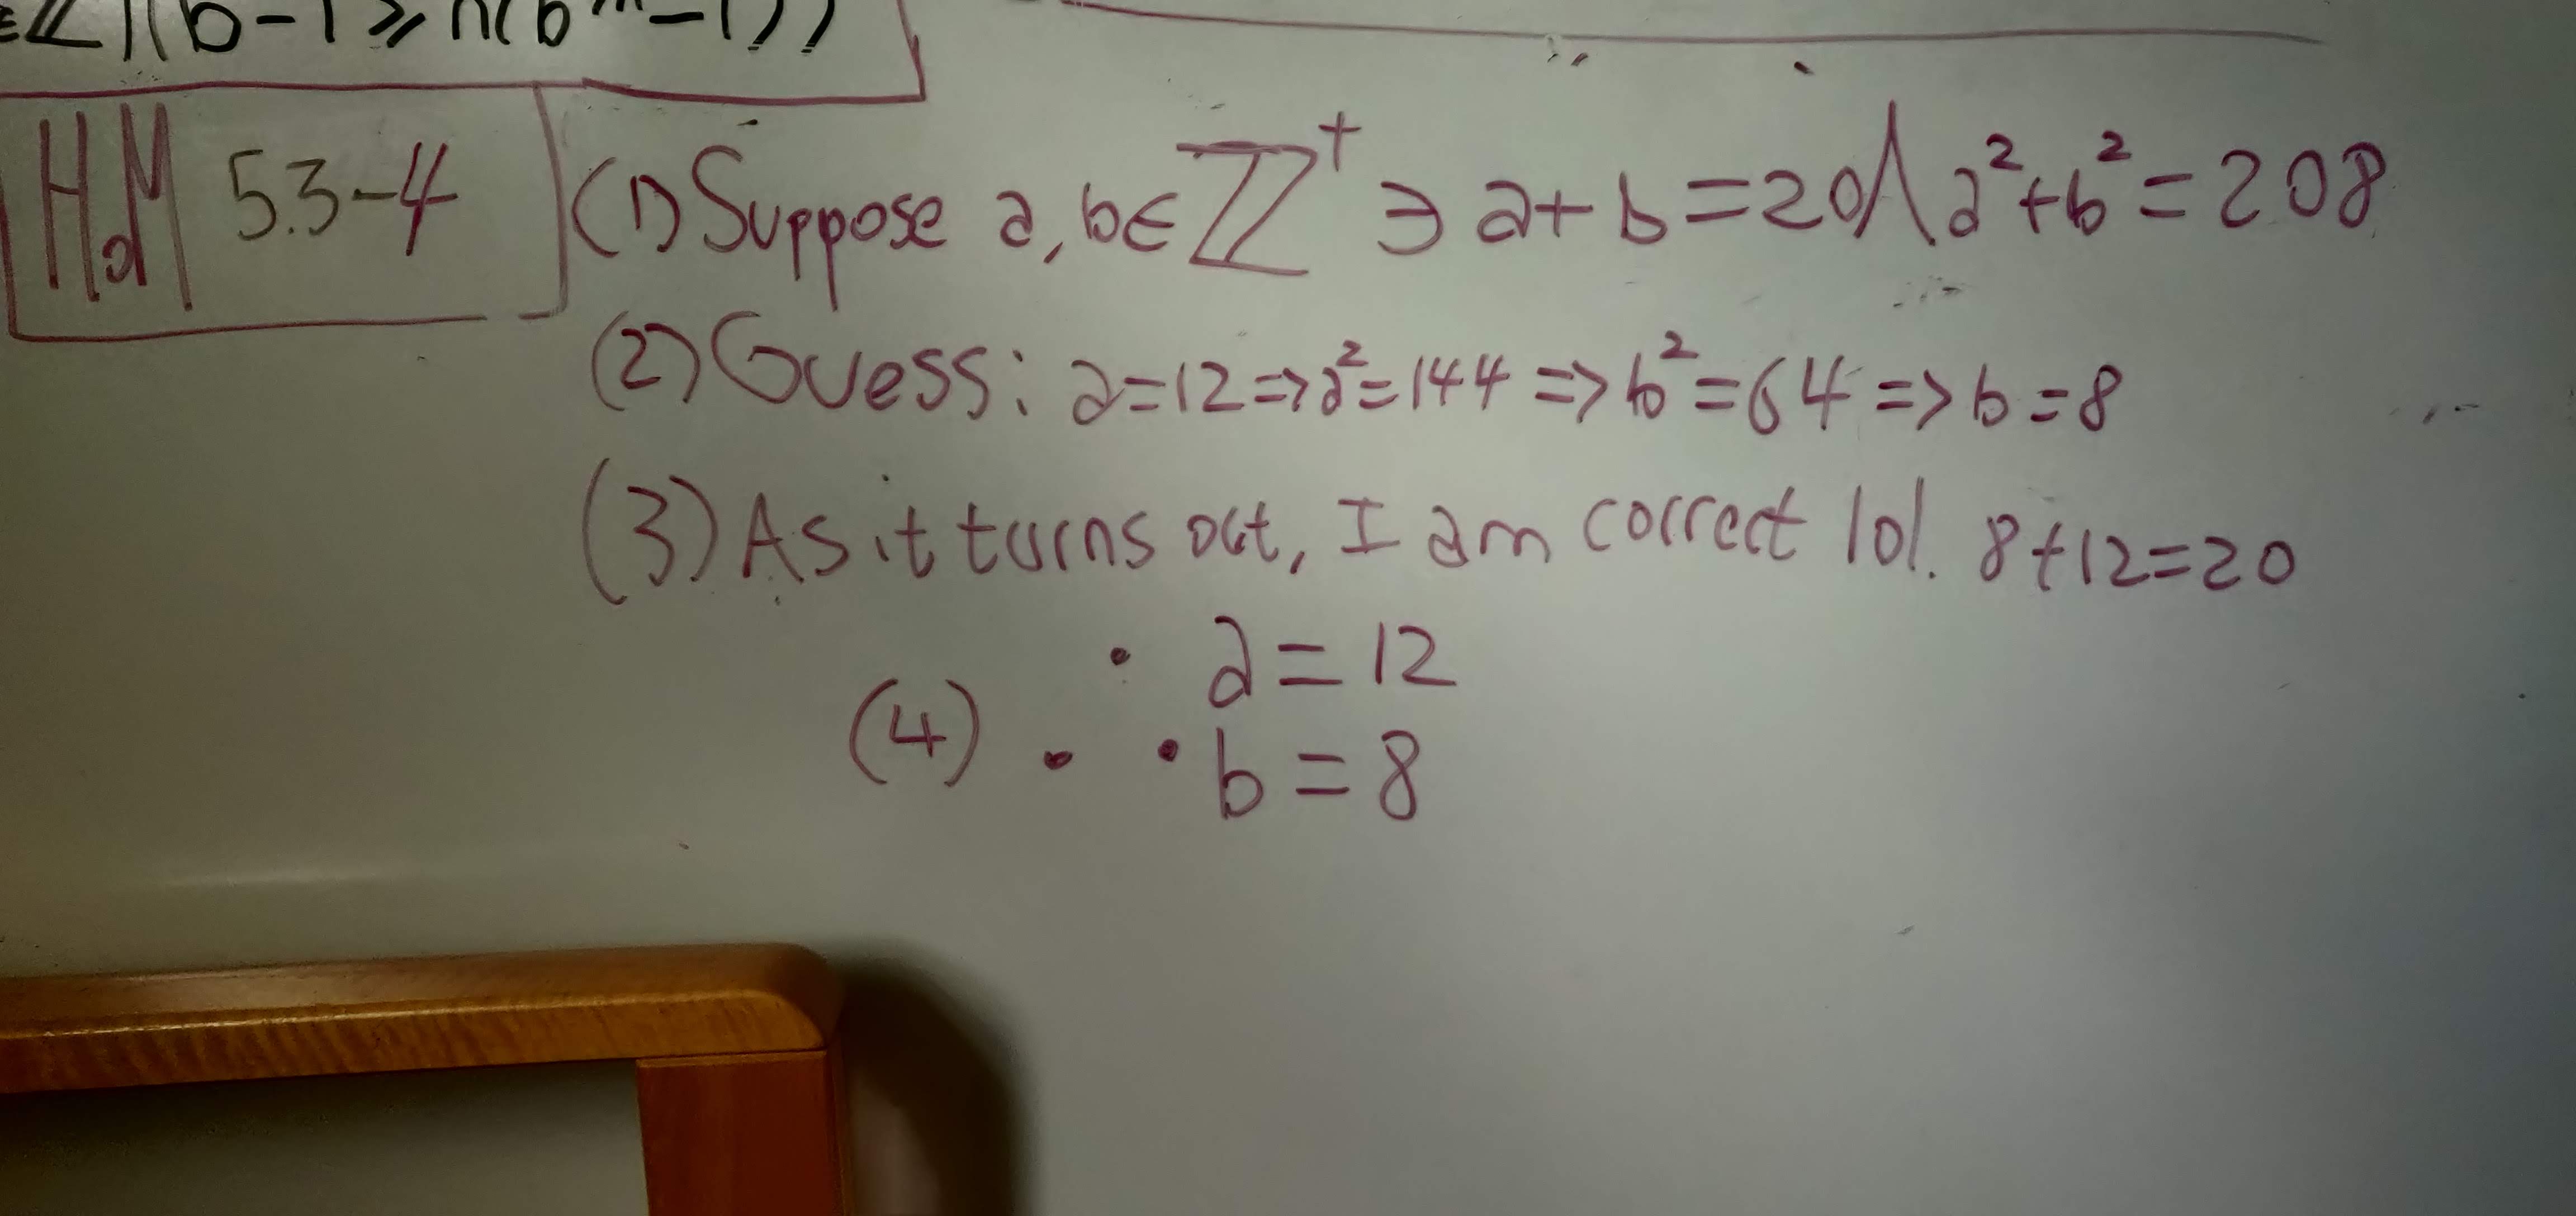 ℤ)(b-1≥n(b -1))
HoM 5.3-4
(1) Suppose a, b∈ℤ⁺ ∋ a+b=20 ∧ a²+b²=208
(2) Guess: a=12⇒a²=144⇒b²=64⇒b=8
(3) As it turns out, I am correct lol. 8+12=20
(4) ∴ a=12
b=8